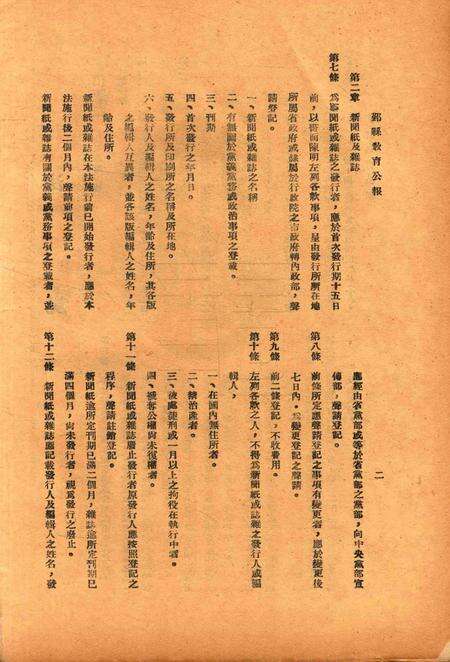 鄞縣教育公報
二
第二章　新聞紙及雜誌
第七條　為新聞紙或雜誌之發行者，應於首次發行期十五日
前，以書面陳明左列各款事項，呈由發行所所在地
所屬省政府或隸屬於行政院之市政府轉內政部，聲
請登記。
一、新聞紙或雜誌之名稱
二、有無關於黨義黨務或政治事項之登載。
三、刊期
四、首次發行之年月日。
五、發行所及印刷所之名稱及所在地。
六、發行人及編輯人之姓名，年齡及住所，其各版
之編輯人互異者，並各該版編輯人之姓名，年
齡及住所。
新聞紙或雜誌在本法施行前已開始發行者，應於本
法施行後二個月內，聲請前項之登記。
新聞紙或雜誌有關於黨義或黨務事項之登載者，並
應經由省黨部或等於省黨部之黨部，向中央黨部宣
傳部，聲請登記。
第八條　前條所定應聲請登記之事項有變更者，應於變更後
七日內，為變更登記之聲請。
第九條　前二條登記，不收費用。
第十條　左列各款之人，不得為新聞紙或誌雜之發行人或編
輯人，
一、在國內無住所者。
二、禁治產者。
三、被處徒刑或一月以上之拘役在執行中者。
四、褫奪公權尚未復權者。
第十一條　新聞紙或雜誌廢止發行者原發行人應按照登記之
程序，聲請註銷登記。
新聞紙逾所定刊期已滿二個月，雜誌逾所定刊期已
滿四個月，尚未發行者，視為發行之廢止。
第十二條　新聞紙或雜誌應記載發行人及編輯人之姓名，發